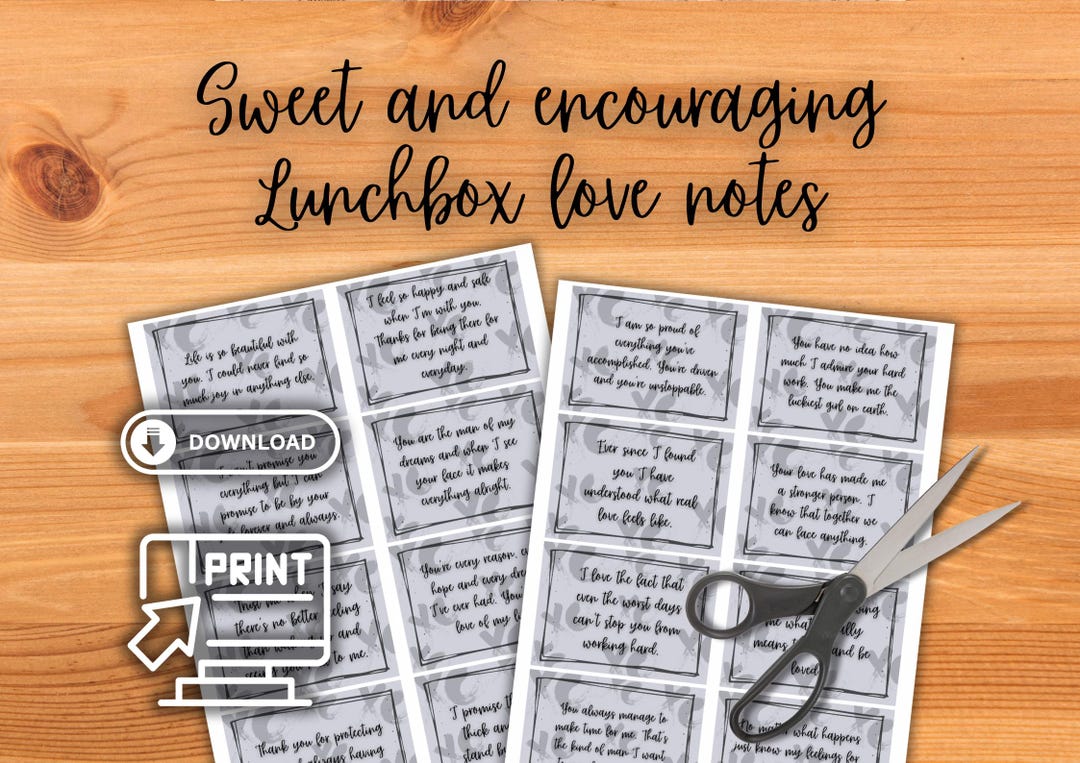 Sweet and encouraging
Lunchbox love notes
Life is so beautiful with
you. I could never find so
much joy in anything else.
I feel so happy and safe
when I'm with you.
Thanks for being there for
me every night and
everyday.
DOWNLOAD
promise you
everything but I can
promise to be by your
forever and always.
You are the man of my
dreams and when I see
your face it makes
everything alright.
PRINT
say
there's no better
and
to me.
You're every reason,
hope and every
I've ever had. You
love of my
Thank you for protecting
always having
I promise
thick an
stand b
I am so proud of
everything you've
accomplished. You're driven
and you're unstoppable.
You have no idea how
much I admire your hard
work. You make me the
luckiest girl on earth.
Ever since I found
you I have
understood what real
love feels like.
Your love has made me
a stronger person. I
know that together we
can face anything.
I love the fact that
even the worst days
can't stop you from
working hard.
me what
means and be
loved
You always manage to
make time for me. That's
the kind of man I want
No matter what happens
just know my feelings for